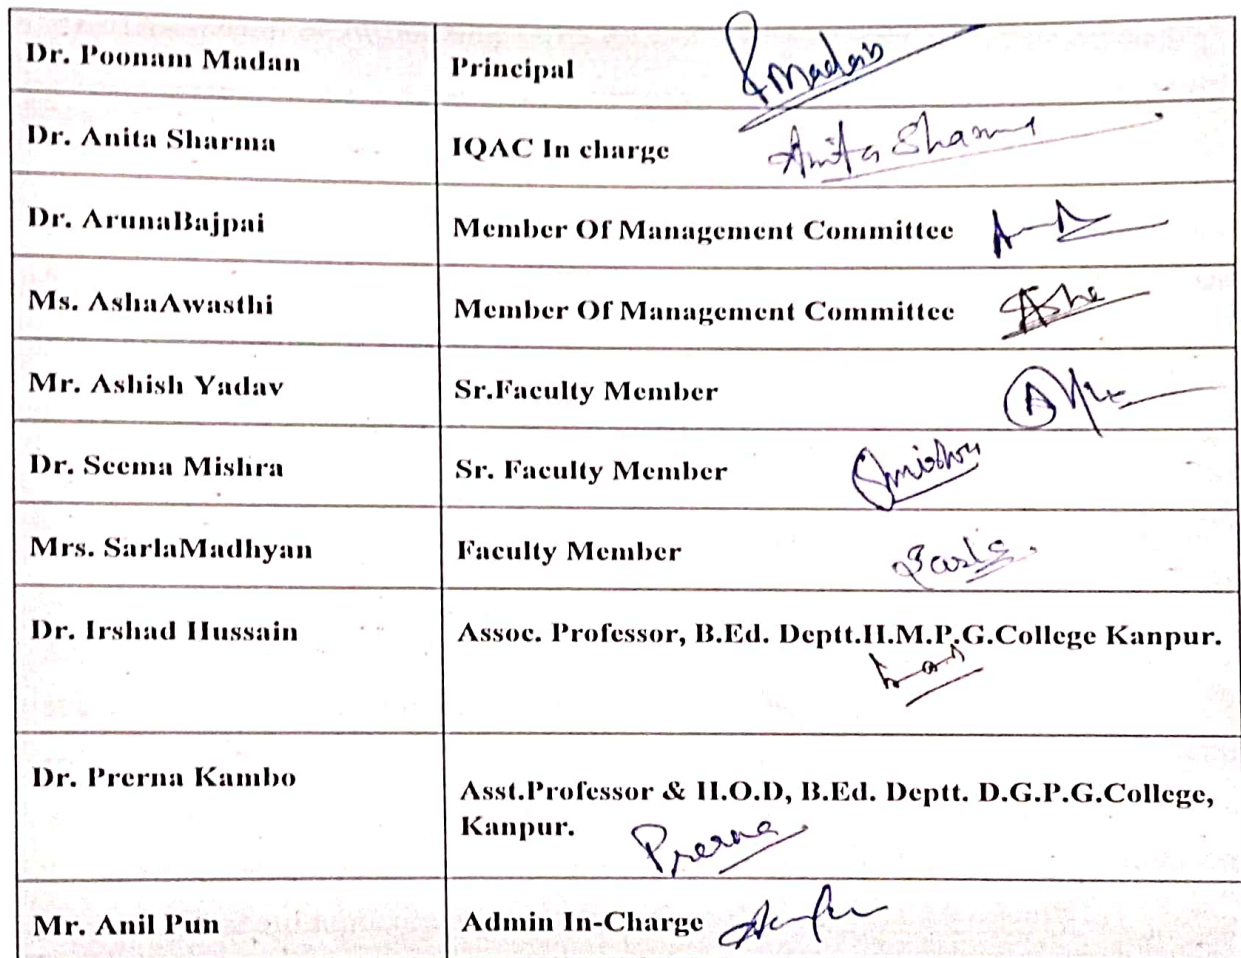 Dr. Poonam Madan
Principal
PMadan
Dr. Anita Sharma
IQAC In charge
Anita Sharma
Dr. ArunaBajpai
Member Of Management Committee
Ms. AshaAwasthi
Member Of Management Committee
Asha
Mr. Ashish Yadav
Sr.Faculty Member
Dr. Seema Mishra
Sr. Faculty Member
Smishra
Mrs. SarlaMadhyan
Faculty Member
Sarla
Dr. Irshad Hussain
Assoc. Professor, B.Ed. Deptt.H.M.P.G.College Kanpur.
Dr. Prerna Kambo
Asst.Professor & H.O.D, B.Ed. Deptt. D.G.P.G.College,
Kanpur.
Prerna
Mr. Anil Pun
Admin In-Charge